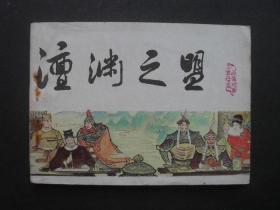 澶渊之盟